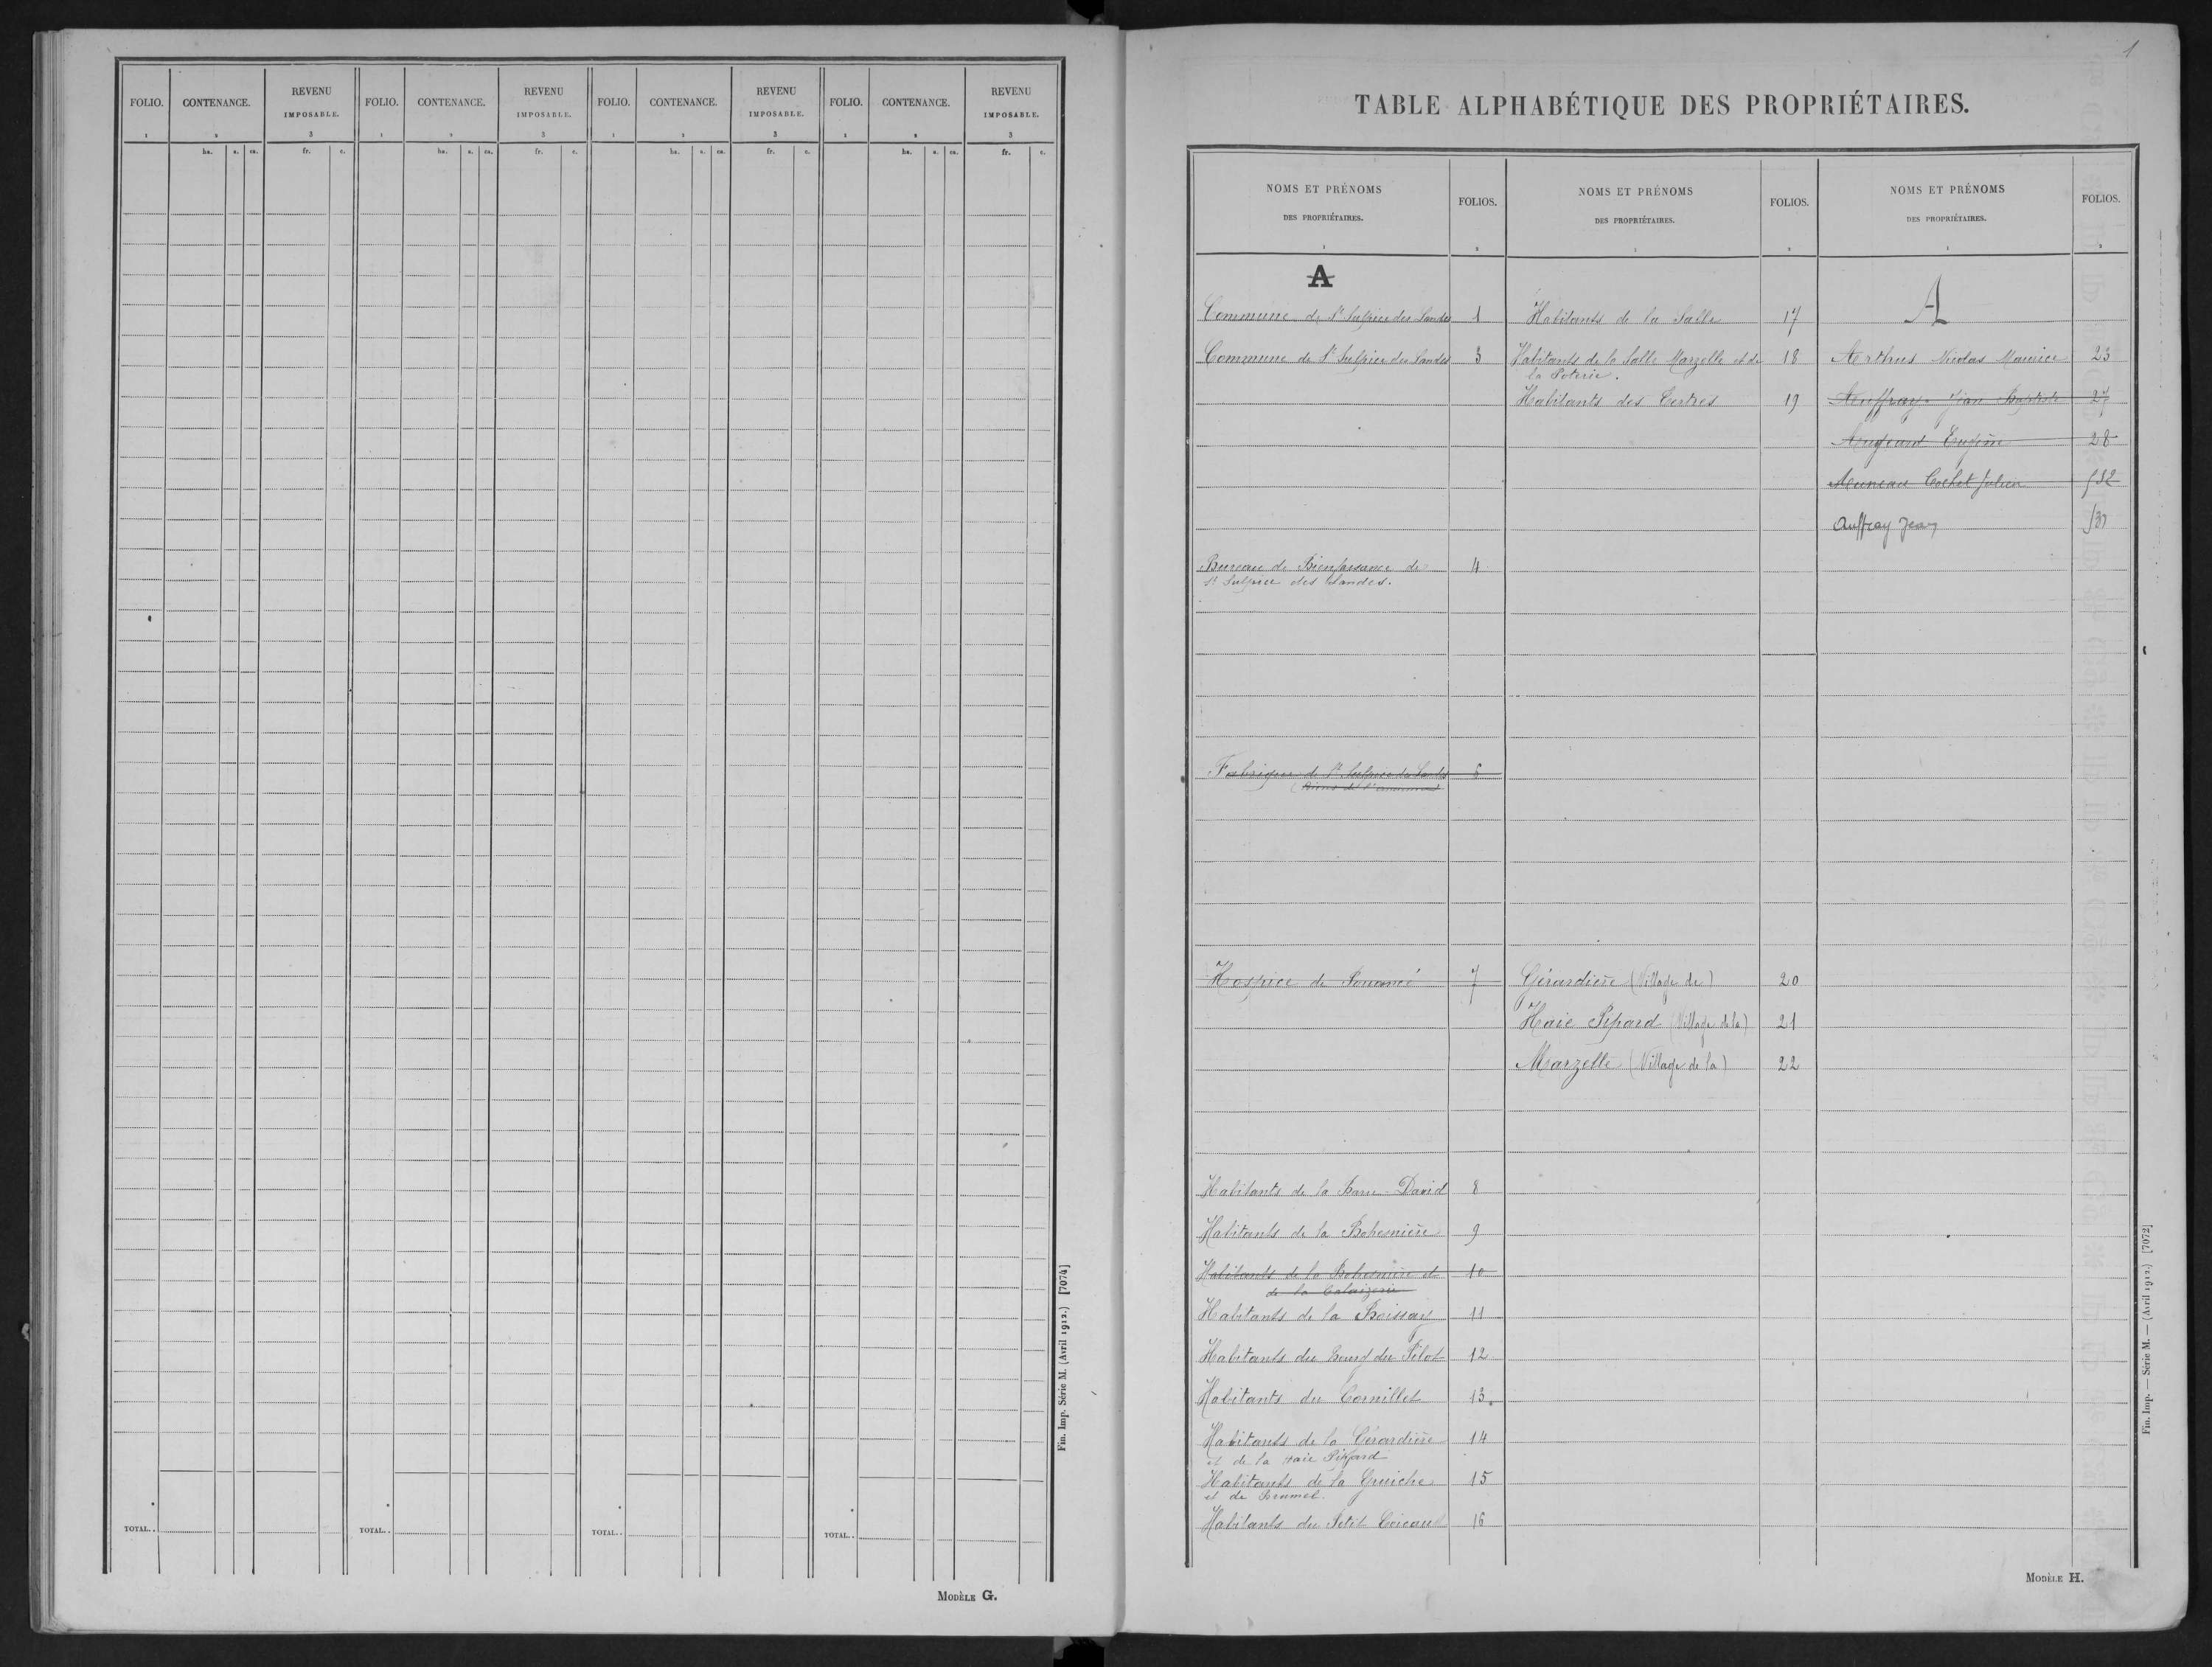 FOLIO. CONTENANCE. REVENU IMPOSABLE. FOLIO. CONTENANCE. REVENU IMPOSABLE. FOLIO. CONTENANCE. REVENU IMPOSABLE. FOLIO. CONTENANCE. REVENU IMPOSABLE.
1 2 3 1 2 3 1 2 3 1 2 3
ha. a. ca. fr. c. ha. a. ca. fr. c. ha. a. ca. fr. c. ha. a. ca. fr. c.
TOTAL.. TOTAL.. TOTAL.. TOTAL..
Fin. Imp. Série M. (Avril 1912.) [7074]
MODÈLE G.
1
TABLE ALPHABÉTIQUE DES PROPRIÉTAIRES.
NOMS ET PRÉNOMS DES PROPRIÉTAIRES. FOLIOS. NOMS ET PRÉNOMS DES PROPRIÉTAIRES. FOLIOS. NOMS ET PRÉNOMS DES PROPRIÉTAIRES. FOLIOS.
1 2 1 2 1 2
A
Commune de St Sulpice des Landes 1
Commune de St Sulpice des Landes 3
Bureau de Bienfaisance de 4
St Sulpice des Landes.
Fabrique de St Sulpice des Landes 6
Hospice de Pouancé 7
Habitants de la Barre David 8
Habitants de la Bohesnière 9
Habitants de la Bohesnière et 10
de la
Habitants de la Boissay 11
Habitants du Bourg du Pilot 12
Habitants du Cornillet 13
Habitants de la Gérardière 14
et de la Haie Pipard
Habitants de la Gruiche 15
et de
Habitants du Petit 16
Habitants de la Salle 17
Habitants de la Salle Marzelle et de 18
la Poterie.
Habitants des Tertres 19
Gérardière (Village de) 20
Haie Pipard (Village de la) 21
Marzelle (Village de la) 22
A
Arthus Nicolas Maurice 23
Auffray Jean Baptiste 27
Augeard Eugène 28
Auneau Cochet Julien 532
Auffray Jean
Fin. Imp. — Série M. — (Avril 1912.) [7072]
MODÈLE H.